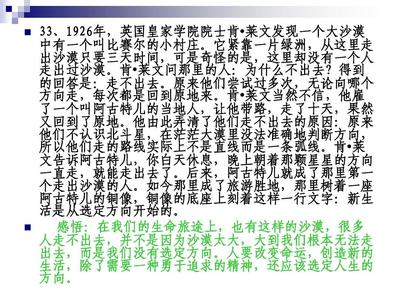 33、1926年，英国皇家学院院士肯•莱文发现一个大沙漠
中有一个叫比赛尔的小村庄。它紧靠一片绿洲，从这里走
出沙漠只要三天时间，可是奇怪的是，这里却没有一个人
走出过沙漠。肯•莱文问那里的人：为什么不出去？得到
的回答是：走不出去。原来他们尝试过多次，无论向哪个
方向走，每次都是回到原地来。肯•莱文当然不信，他雇
了一个叫阿古特儿的当地人，让他带路，走了十天，果然
又回到了原地。他由此弄清了他们走不出去的原因：原来
他们不认识北斗星，在茫茫大漠里没法准确地判断方向，
所以他们走的路线实际上不是直线而是一条弧线。肯•莱
文告诉阿古特儿，你白天休息，晚上朝着那颗星星的方向
一直走，就能走出去了。后来，阿古特儿就成了那里第一
个走出沙漠的人。如今那里成了旅游胜地，那里树着一座
阿古特儿的铜像，铜像的底座上刻着这样一行文字：新生
活是从选定方向开始的。
感悟：在我们的生命旅途上，也有这样的沙漠，很多
人走不出去，并不是因为沙漠太大，大到我们根本无法走
出去，而是我们没有选定方向。人要改变命运，创造新的
生活，除了需要一种勇于追求的精神，还应该选定人生的
方向。